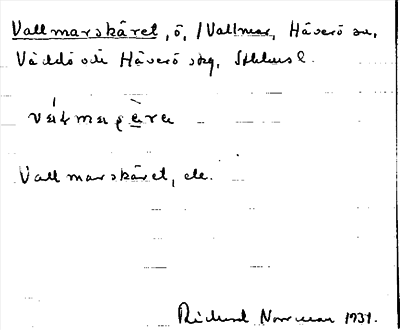 Vallmarskäret, ö, / Vallmar, Häverö sn,
Väddö och Häverö skg, Sthlms l.
Vallmarskäret, ele.
Rickard Norrman 1931.